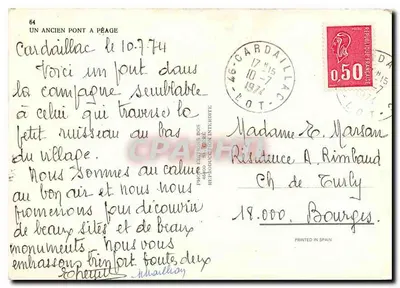 64
UN ANCIEN PONT A PÉAGE
Cardaillac le 10.7.74
Voici un pont dans
la campagne semblable
à celui qui traverse le
petit ruisseau au bas
du village.
Nous sommes au calme
au bon air et nous nous
promenons pour découvrir
de beaux sites et de beaux
monuments. Nous vous
embrassons bien fort toutes deux
46 - CARDAILLAC
17 H 15
10 - 7
1974
LOT
REPUBLIQUE FRANÇAISE
0,50
Madame E. Marsan
Résidence A. Rimbaud
Ch de Turly
18.000. Bourges.
PRINTED IN SPAIN